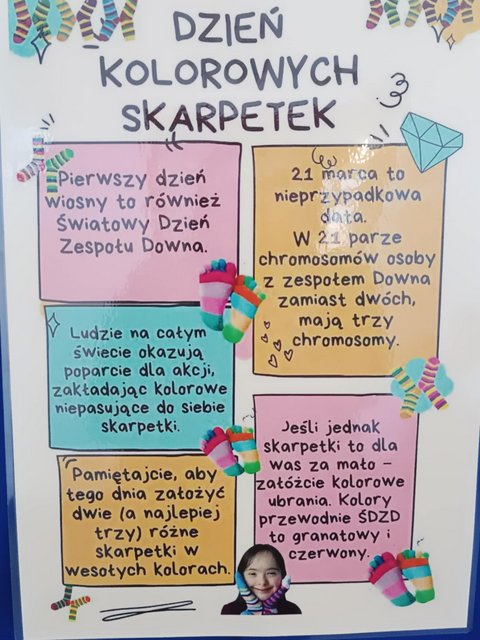 DZIEŃ
KOLOROWYCH
SKARPETEK
Pierwszy dzień
wiosny to również
Światowy Dzień
Zespołu Downa.
21 marca to
nieprzypadkowa
data.
W 21 parze
chromosomów osoby
z zespołem Downa
zamiast dwóch,
mają trzy
chromosomy.
Ludzie na całym
świecie okazują
poparcie dla akcji,
zakładając kolorowe
niepasujące do siebie
skarpetki.
Jeśli jednak
skarpetki to dla
was za mało –
załóżcie kolorowe
ubrania. Kolory
przewodnie ŚDZD
to granatowy i
czerwony.
Pamiętajcie, aby
tego dnia założyć
dwie (a najlepiej
trzy) różne
skarpetki w
wesołych kolorach.